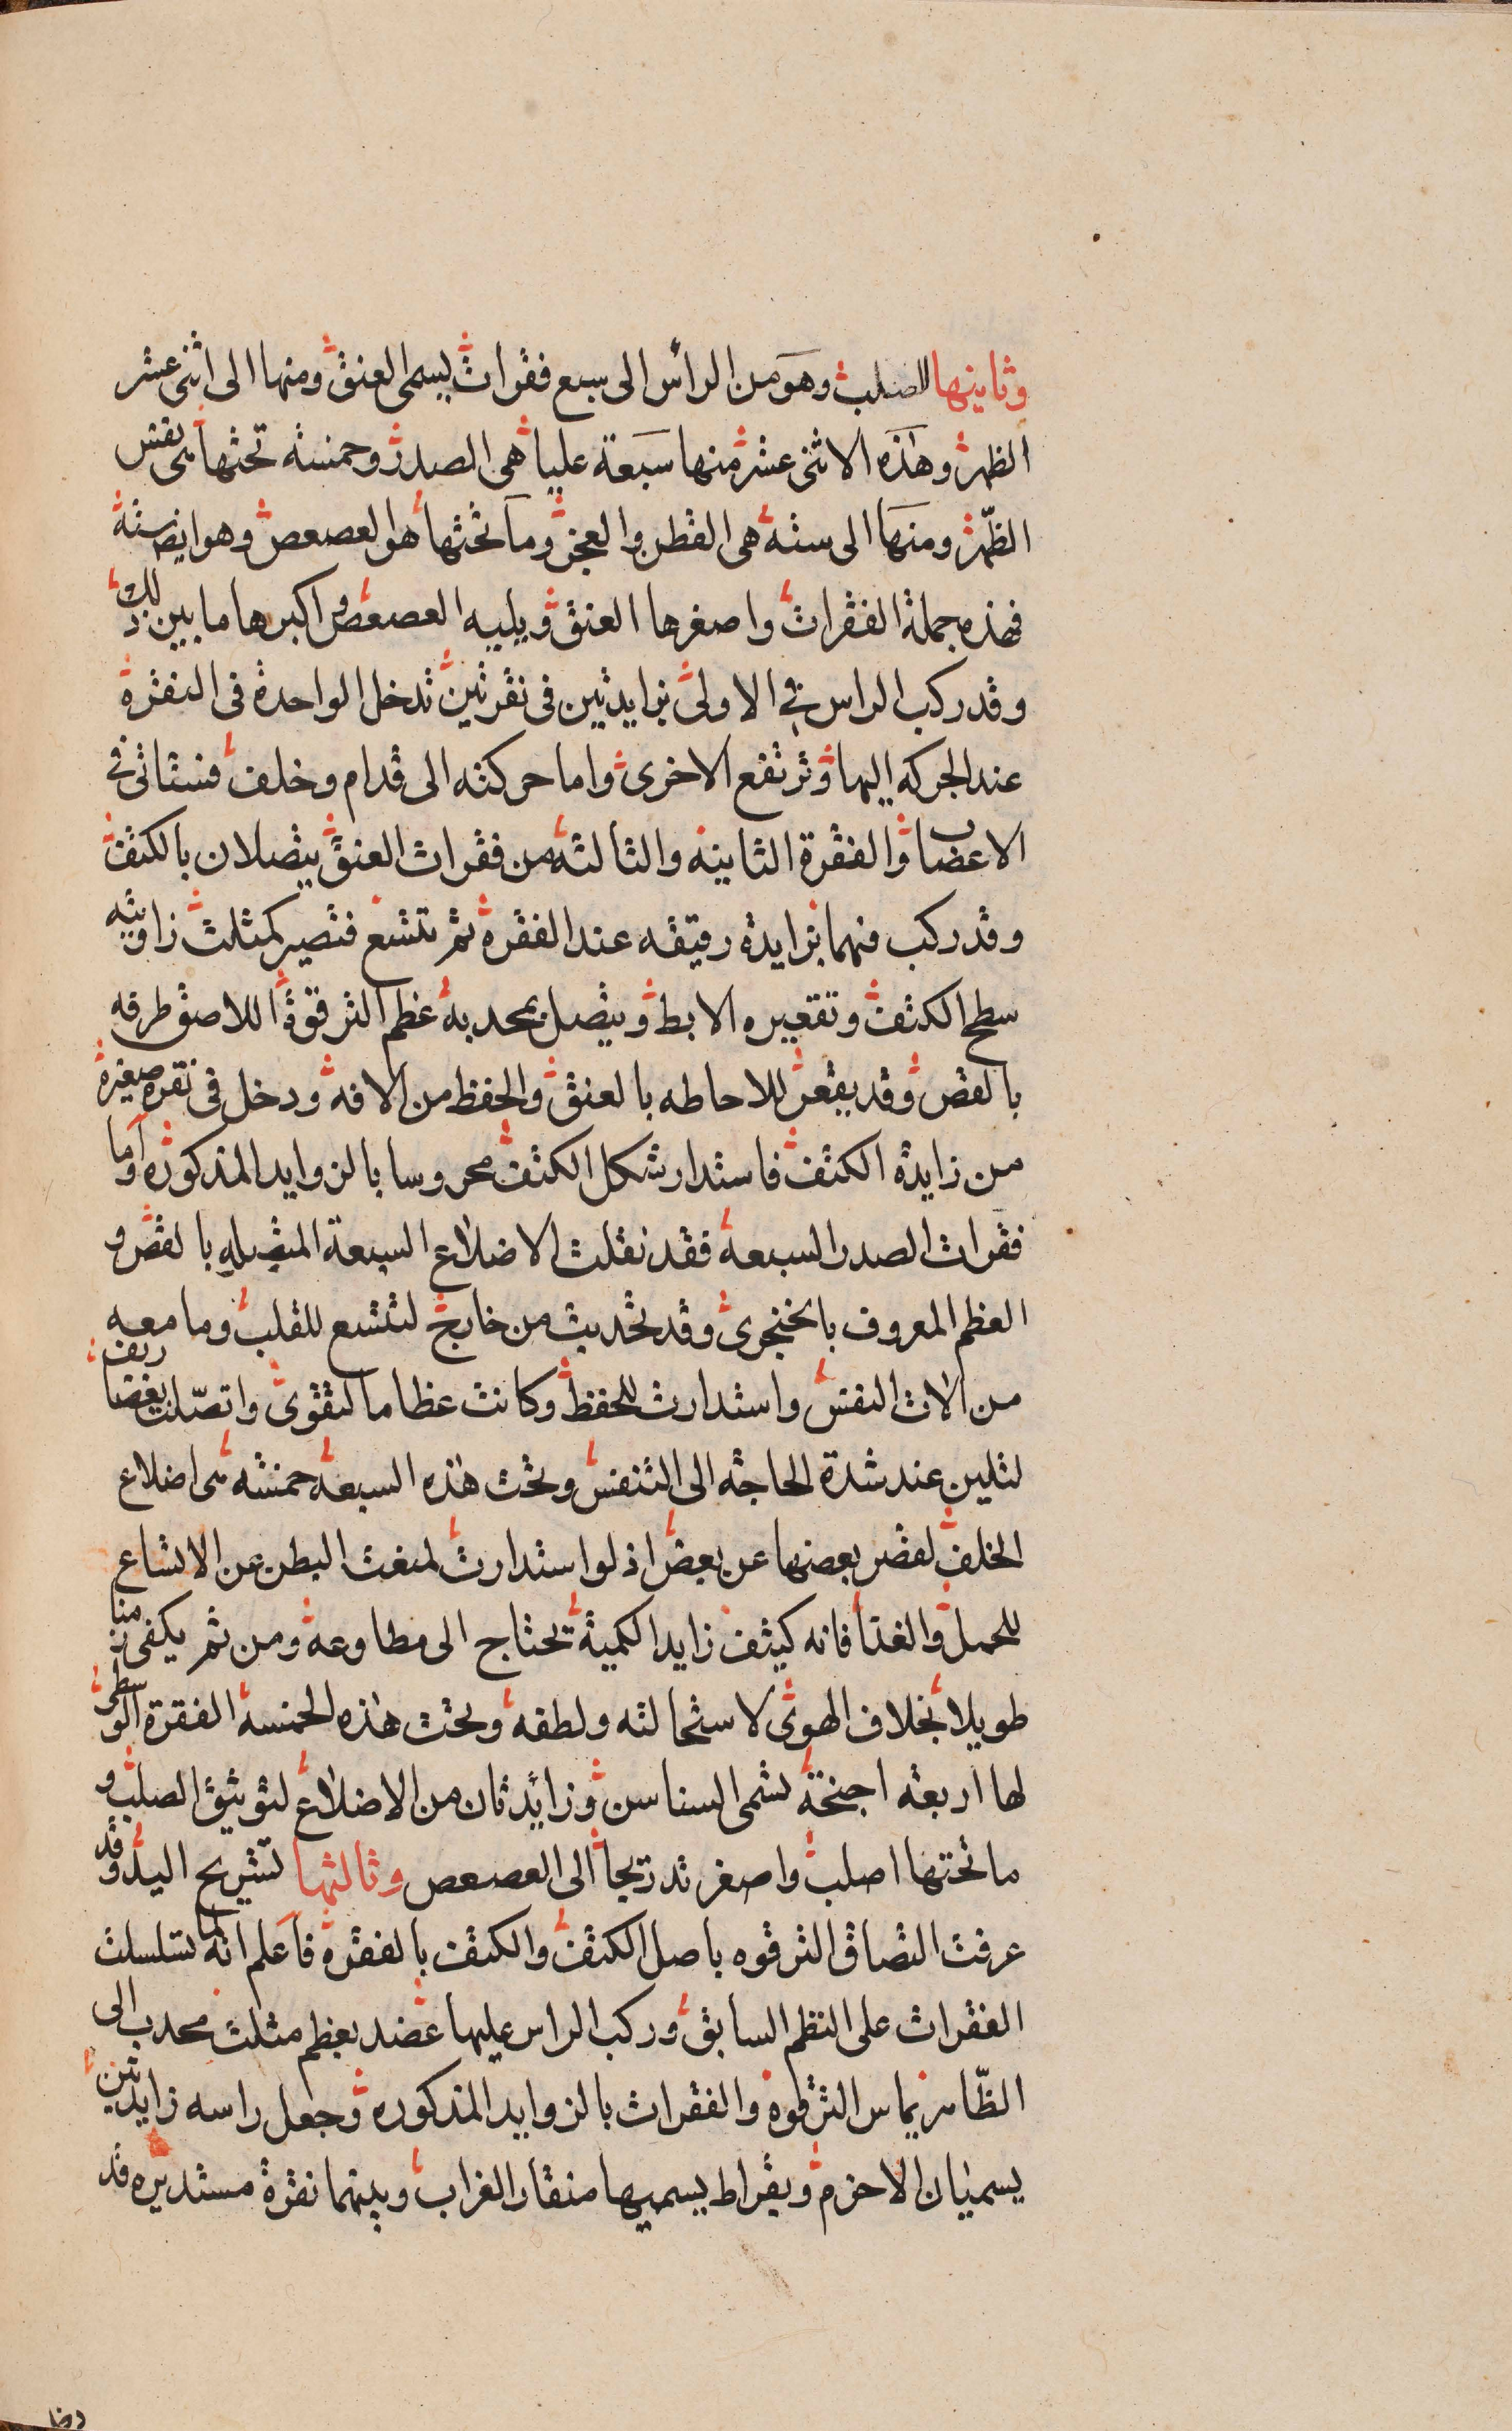 وثانيها الصلب وهو من الرأس الى سبع فقرات يسمى العنق ومنها الى اثنى عشر
الظهر وهذه الاثنى عشر منها سبعة عليا هى الصدر وخمسة تحتها هى نفس
الظهر ومنها الى ستة هى القطن والعجز وما تحتها هو العصعص وهو ايضا ستة
فهذه جملة الفقرات واصغرها العنق ويليه العصعص واكبرها ما بين ذلك
وقد ركب الراس فى الاولى بزايدتين فى نقرتين تدخل الواحدة فى النقرة
عند الحركه اليها وترتفع الاخرى واما حركته الى قدام وخلف فستاتى فى
الاعصاب والفقرة الثانيه والثالثة من فقرات العنق يتصلان بالكتف
وقد ركب فيهما بزايدة رقيقه عند الفقره ثم تتسع فتصير كمثلث زاويته
سطح الكتف وتقعيره الابط ويتصل بمحدبه عظم الترقوة اللاصق طرفه
بالقص وقد يقعر للاحاطه بالعنق والحفظ من الافه ودخل فى نقرة صغيرة
من زايدة الكتف فاستدار شكل الكتف محروسا بالزوايد المذكوره واما
فقرات الصدر السبعة فقد نقلت الاضلاع السبعة المتصله بالقص و
العظم المعروف بالخنجرى وقد تحدبت من خارج لتتسع للقلب وما معه
من الات النفس واستدارت للحفظ وكانت عظاما لتقوى واتصلت بغضاريف
لتلين عند شدة الحاجه الى التنفس وتحت هذه السبعة خمسة هى اضلاع
الخلف لقصر بعضها عن بعض اذ لو استدارت لمنعت البطن عن الاتساع
للحمل والغذا فانه كثيف زايد الكمية تحتاج الى مطاوعه ومن ثم يكفى زمنا
طويلا بخلاف الهوى لاستحالته ولطفه وتحت هذه الخمسة الفقرة الوسطى
لها اربعه اجنحة تسمى السناسن وزائدتان من الاضلاع لتوثيق الصلب و
ما تحتها اصلب واصغر تدريجا الى العصعص وثالثها تشريح اليد وقد
عرفت التصاق الترقوه باصل الكتف والكتف بالفقرة فاعلم انه لما تسلسلت
الفقرات على النظم السابق وركب الراس عليها عضد بعظم مثلث محدب الى
الظاهر يماس الترقوه والفقرات بالزوايد المذكوره وجعل راسه زايدتين
يسميان الاخرم وبقراط يسميها منقار الغراب وبينهما نقرة مستديره قد
دخا